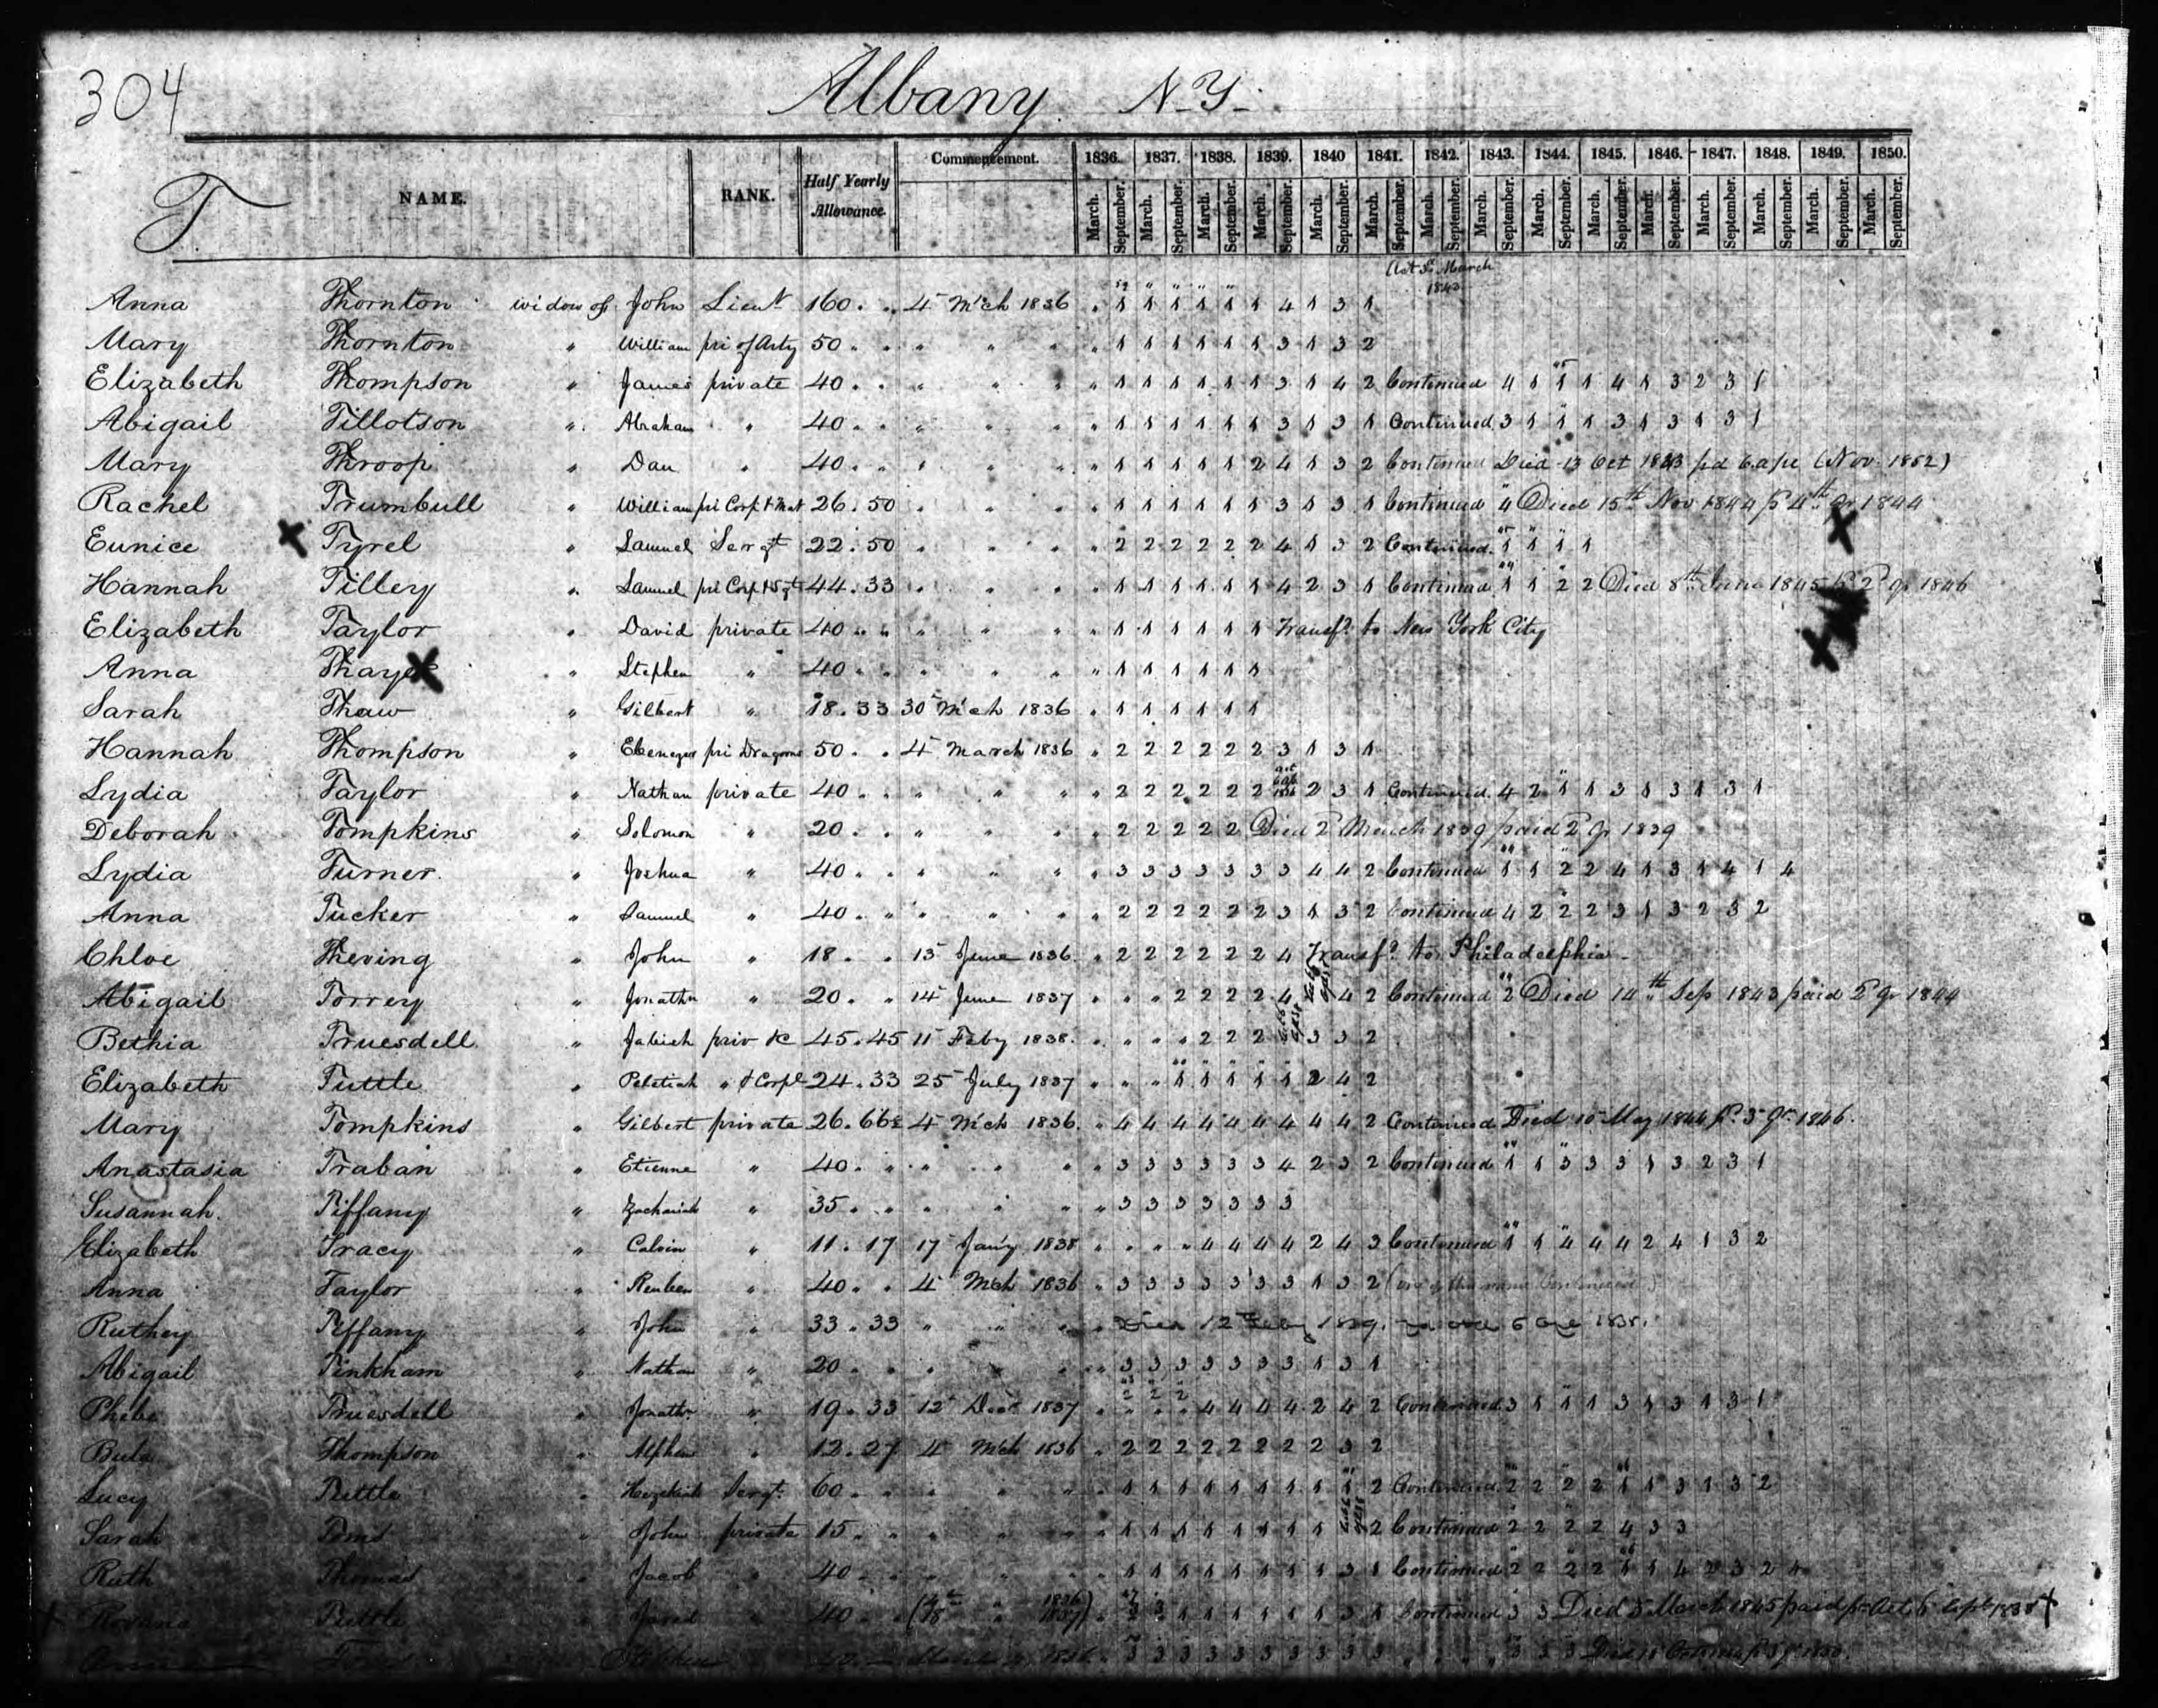 304
Albany N-Y-
T
NAME. RANK. Half Yearly Allowance. Commencement. 1836. 1837. 1838. 1839. 1840 1841. 1842. 1843. 1844. 1845. 1846. 1847. 1848. 1849. 1850.
March. September. March. September. March. September. March. September. March. September. March. September. March. September. March. September. March. September. March. September. March. September. March. September. March. September. March. September. March. September.
Act 3d March 1843
Anna Thornton widow of John Lieut 160 . . 4 Mch 1836 " 1 1 1 1 1 1 4 1 3 1
Mary Thornton " William pri of Arty 50 . . " " " " 1 1 1 1 1 1 3 1 3 2
Elizabeth Thompson " James private 40 . . " " " " 1 1 1 1 1 1 3 1 4 2 Continued 4 1 1 1 4 1 3 2 3 1
Abigail Tillotson " Abraham " 40 . . " " " " 1 1 1 1 1 1 3 1 3 1 Continued 3 1 1 1 3 1 3 1 3 1
Mary Throop " Dan " 40 . . " " " " 1 1 1 1 1 2 4 1 3 2 Continued Died 13 Oct 1843 pd (Nov. 1852)
Rachel Trumbull " William pri Corp & Mat 26.50 " " " " 1 1 1 1 1 1 3 1 3 1 Continued 4 Died 15th Nov 1844 4th qr 1844
Eunice Tyrel " Samuel Sergt 22.50 " " " " 2 2 2 2 2 2 4 1 3 2 Continued. 1 1 1 1
Hannah Tilley " Samuel pri Corp & Sgt 44.33 " " " " 1 1 1 1 1 1 4 2 3 1 Continued 1 1 2 2 Died 8th June 1845 2d qr 1846
Elizabeth Taylor " David private 40 " " " " " " 1 1 1 1 1 1 Transfd to New York City
Anna Thayer " Stephen " 40 . . " " " " 1 1 1 1 1 1
Sarah Thaw " Gilbert " 18.33 30 Mch 1836 " 1 1 1 1 1 1
Hannah Thompson " Ebenezer pri Dragoons 50 . . 4 March 1836 " 2 2 2 2 2 2 3 1 3 1
Lydia Taylor " Nathan private 40 . . " " " " 2 2 2 2 2 2 2 3 1 Continued. 4 2 1 1 3 1 3 1 3 1
Deborah Tompkins " Solomon " 20 . . " " " " 2 2 2 2 2 Died 2 March 1839 paid 2 qr 1839
Lydia Turner. " Joshua " 40 . . " " " " 3 3 3 3 3 3 3 4 4 2 Continued 1 1 2 2 4 1 3 1 4 1 4
Anna Tucker " Samuel " 40 . " " " " " 2 2 2 2 2 2 3 1 3 2 Continued 4 2 2 2 3 1 3 2 3 2
Chloe Thering " John " 18 . . 15 June 1836 " 2 2 2 2 2 2 4 Transfd to Philadelphia -
Abigail Torrey " Jonathn " 20 . " 14 June 1837 " " " 2 2 2 2 4 4 2 Continued 2 Died 14th Sep 1843 paid 2d qr 1844
Bethia Truesdell " Jabish priv &c 45.45 11 Feby 1838. " " " " 2 2 2 3 3 2
Elizabeth Tuttle " Pelatiah " & Corpl 24.33 25 July 1837 " " " 1 1 1 1 1 2 4 2
Mary Tompkins " Gilbert private 26.66 4 Mch 1836. " 4 4 4 4 4 4 4 4 4 2 Continued Died 10 May 1844 3d qr 1846.
Anastasia Traban " Etienne " 40 . " " " " " 3 3 3 3 3 3 4 2 3 2 Continued 1 1 3 3 3 1 3 2 3 1
Susannah. Tiffany " Zachariah " 35 . " " " " " 3 3 3 3 3 3 3
Elizabeth Tracy " Calvin " 11.17 17 Jany 1838 " " " " 4 4 4 4 2 4 3 Continued 1 1 4 4 4 2 4 1 3 2
Anna Taylor " Reuben " 40 . . 4 Mch 1836 " 3 3 3 3 3 3 3 1 3 2 (one of this name Continued)
Ruthey Tiffany " John " 33.33 " " " " Died 12 Feby 1839.
Abigail Tinkham " Nathan " 20 . . " " " " 3 3 3 3 3 3 3 1 3 1
Phebe Truesdell " Jonathn " 19.33 12 Decr 1837 " " " " 4 4 4 4 2 4 2 Continued 3 1 1 1 3 1 3 1 3 1
Bula Thompson " Alpheus " 12.27 4 Mch 1836 " 2 2 2 2 2 2 2 2 3 2
Lucy Tuttle " Hezekiah Sergt. 60 . " " " " " 1 1 1 1 1 1 1 1 1 2 Continued. 2 2 2 2 1 1 3 1 3 2
Sarah " John private 15 . . " " " " 1 1 1 1 1 1 1 1 2 Continued 2 2 2 2 4 3 3
Ruth Thomas " Jacob " 40 . " " " " 1 1 1 1 1 1 1 1 3 1 Continued 2 2 2 2 1 1 4 2 3 2 4
Roxana Tuttle " Jared " 40 . . 1836 1837 1 1 1 1 1 1 3 1 Continued 3 3 Died 5 March 1845 paid
Stephen 40 March 4, 1836 3 3 3 3 3 3 3 3 3 3 3 3 3 Died